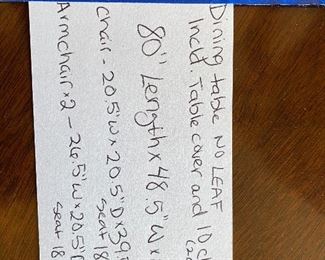 Dining table NO LEAF
Incld. Table cover and 10 c
(2
80" Length x 48.5" W x
chair - 20.5"W x 20.5"D x 39.
seat 18
Armchair x 2 - 26.5"W x 20.5"D
seat 18